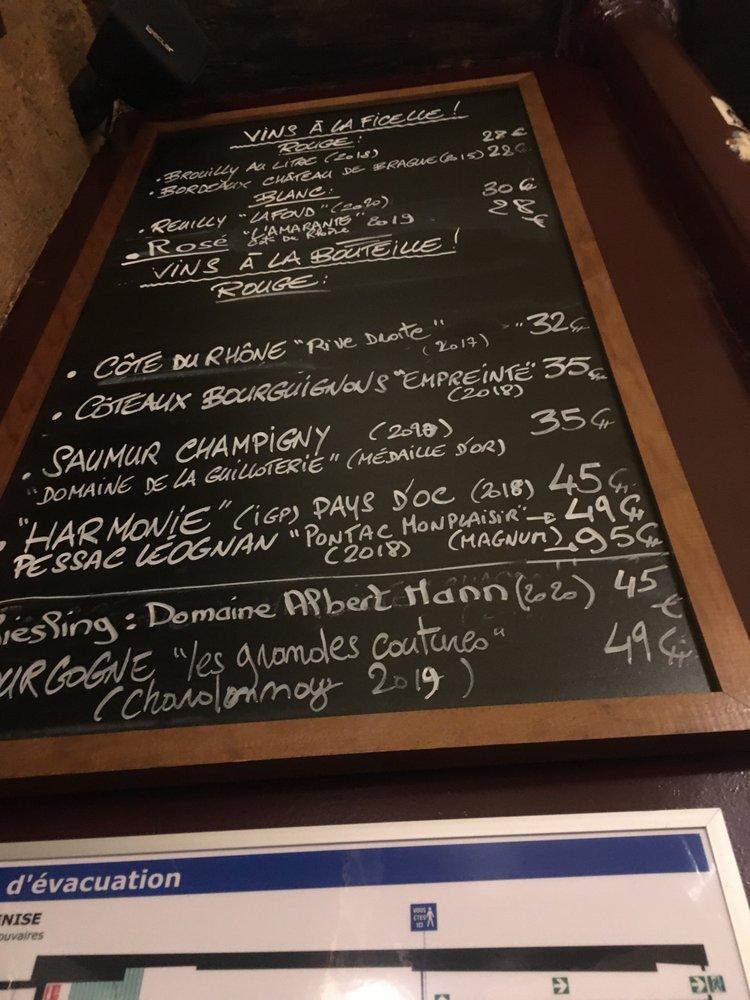 VINS À LA FICELLE !
ROUGE :
• BROUILLY AU LITRE (2018) 28 €
• BORDEAUX CHÂTEAU DE BRAGUE (2015) 22€
BLANC :
• REUILLY "LAFOUD" (2020) 30 €
• ROSÉ "L'AMARANTE" 2019 28 €
Côt de Rhône
VINS À LA BOUTEILLE !
ROUGE :
• CÔTE DU RHÔNE "Rive Droite" (2017) 32€
• CÔTEAUX BOURGUIGNONS "EMPREINTE" 35€
(2018)
• SAUMUR CHAMPIGNY 35€
"DOMAINE DE LA GUILLOTERIE" (MÉDAILLE D'OR)
• "HARMONIE" (IGP) PAYS D'OC (2018) 45€
PESSAC LÉOGNAN "PONTAC MONPLAISIR" → 49€
(2018) (MAGNUM) → 95€
iesling : Domaine Albert Mann (2020) 45 €
URGOGNE "les grandes coutures" 49€
(Chardonnay 2019)
d'évacuation
NISE
ouvaires
VOUS ÊTES ICI